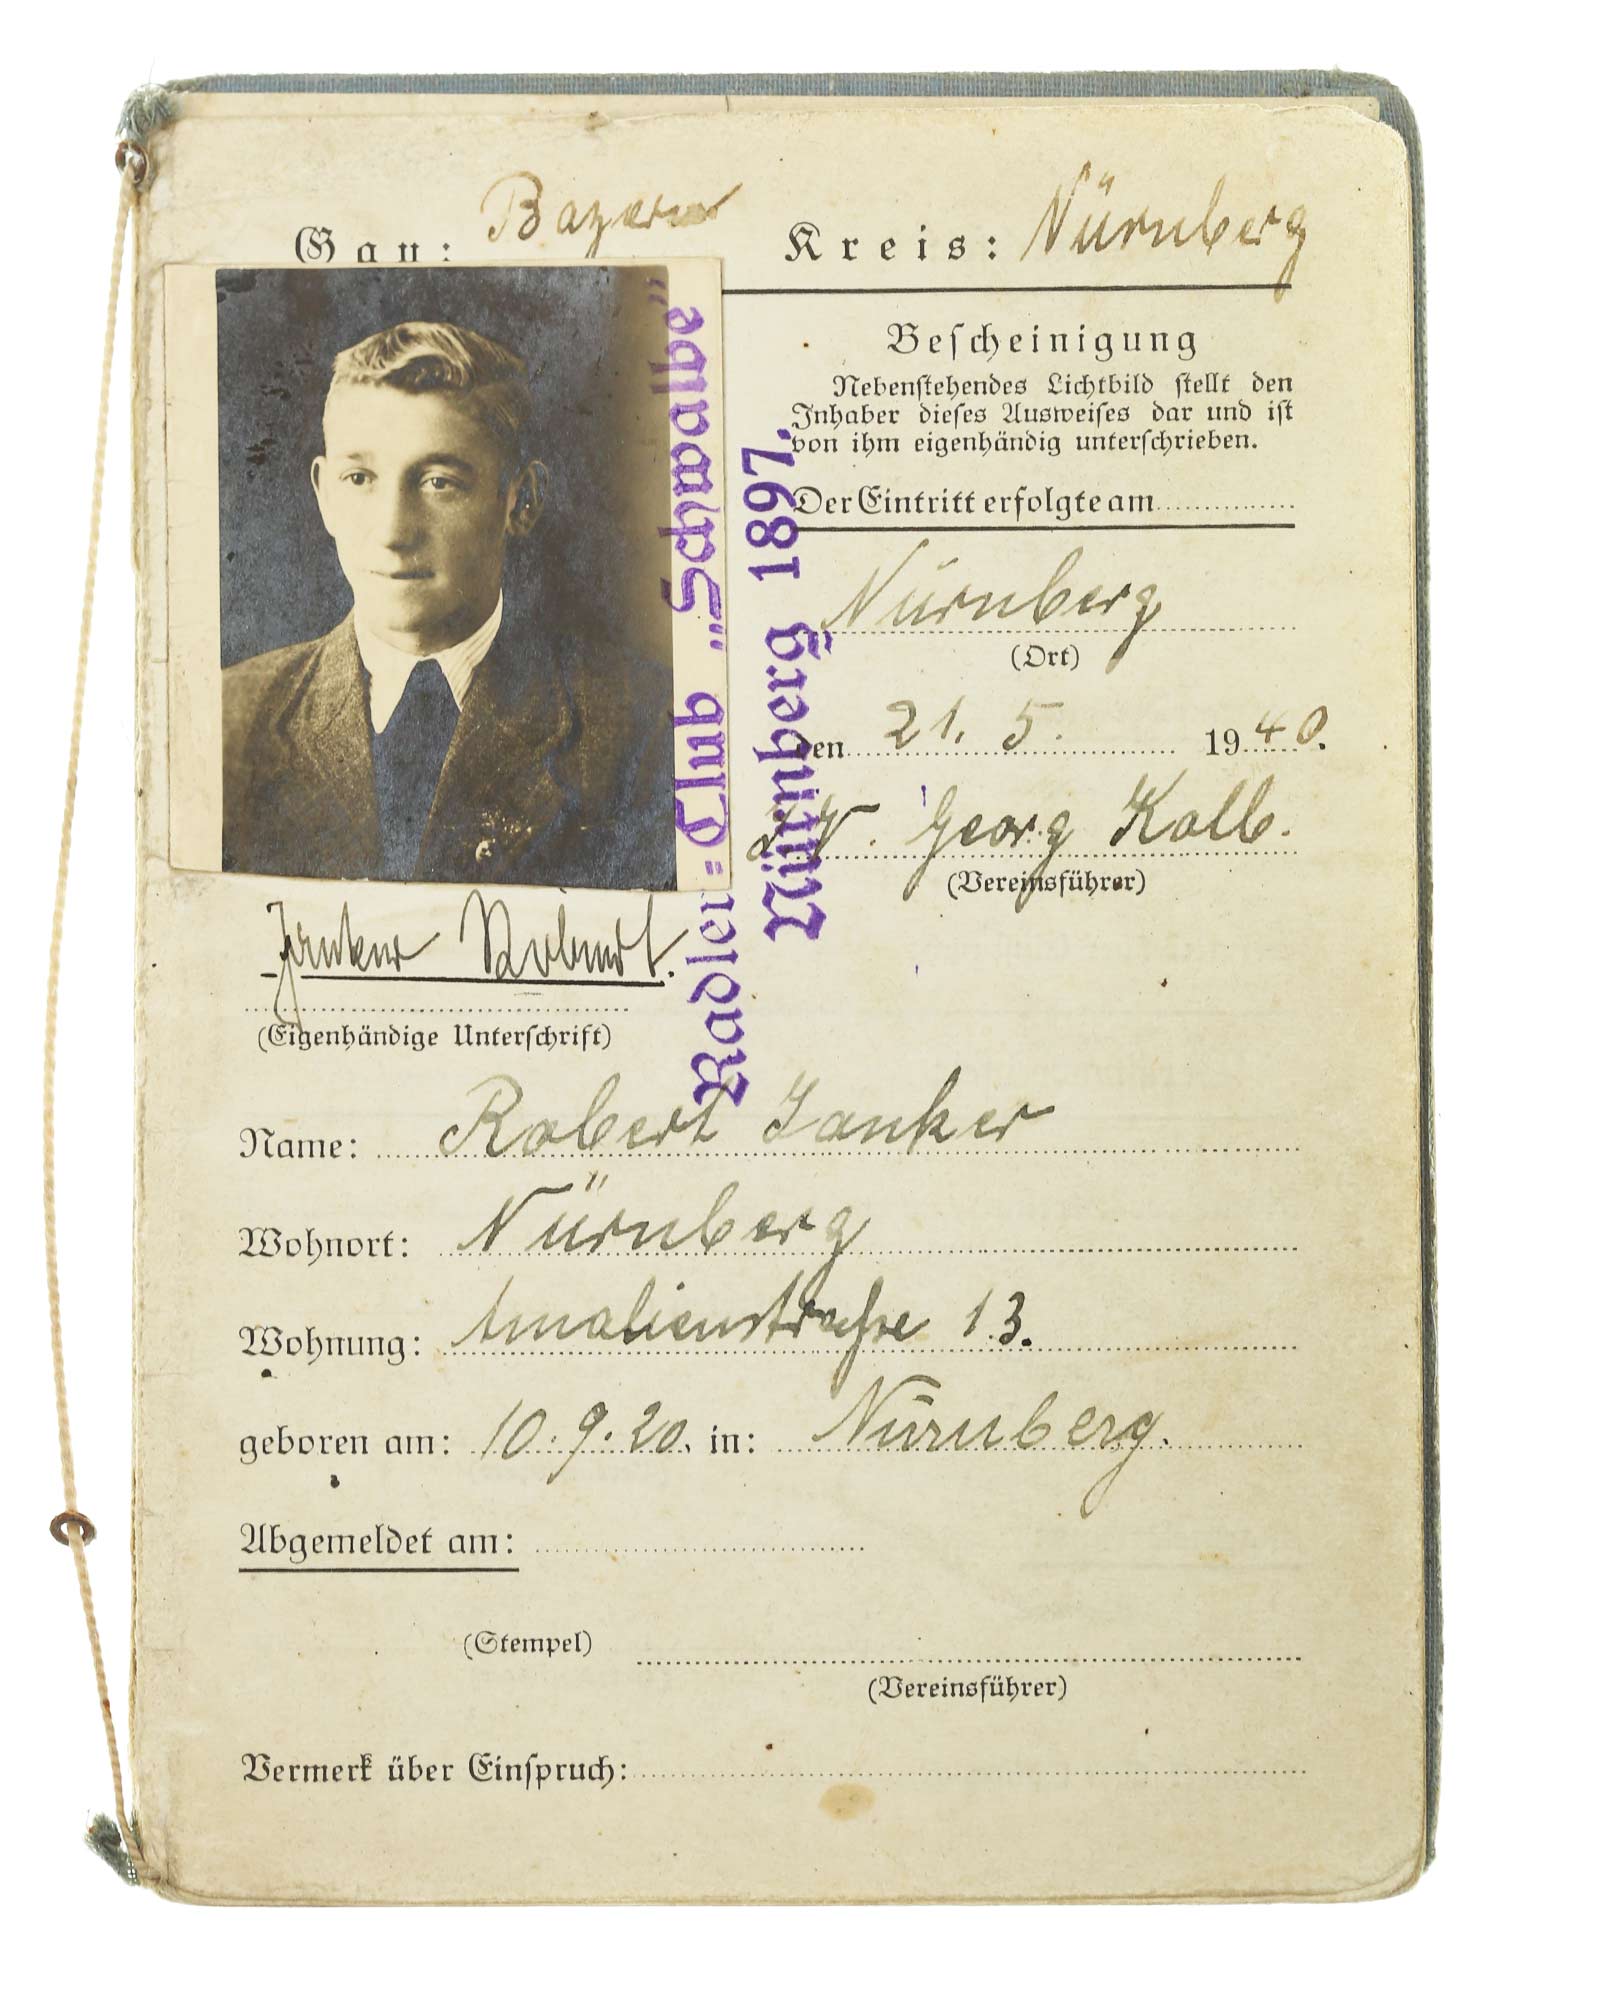 Gau: Bayern Kreis: Nürnberg
Bescheinigung
Nebenstehendes Lichtbild stellt den
Inhaber dieses Ausweises dar und ist
von ihm eigenhändig unterschrieben.
Der Eintritt erfolgte am
Nürnberg
(Ort)
den 21. 5. 1940.
Georg Kolb.
(Vereinsführer)
Radler-Club „Schwalbe“
Nürnberg 1897.
Janker Robert.
(Eigenhändige Unterschrift)
Name: Robert Janker
Wohnort: Nürnberg
Wohnung: Amalienstraße 13.
geboren am: 10. 9. 20. in: Nürnberg.
Abgemeldet am:
(Stempel)
(Vereinsführer)
Vermerk über Einspruch: